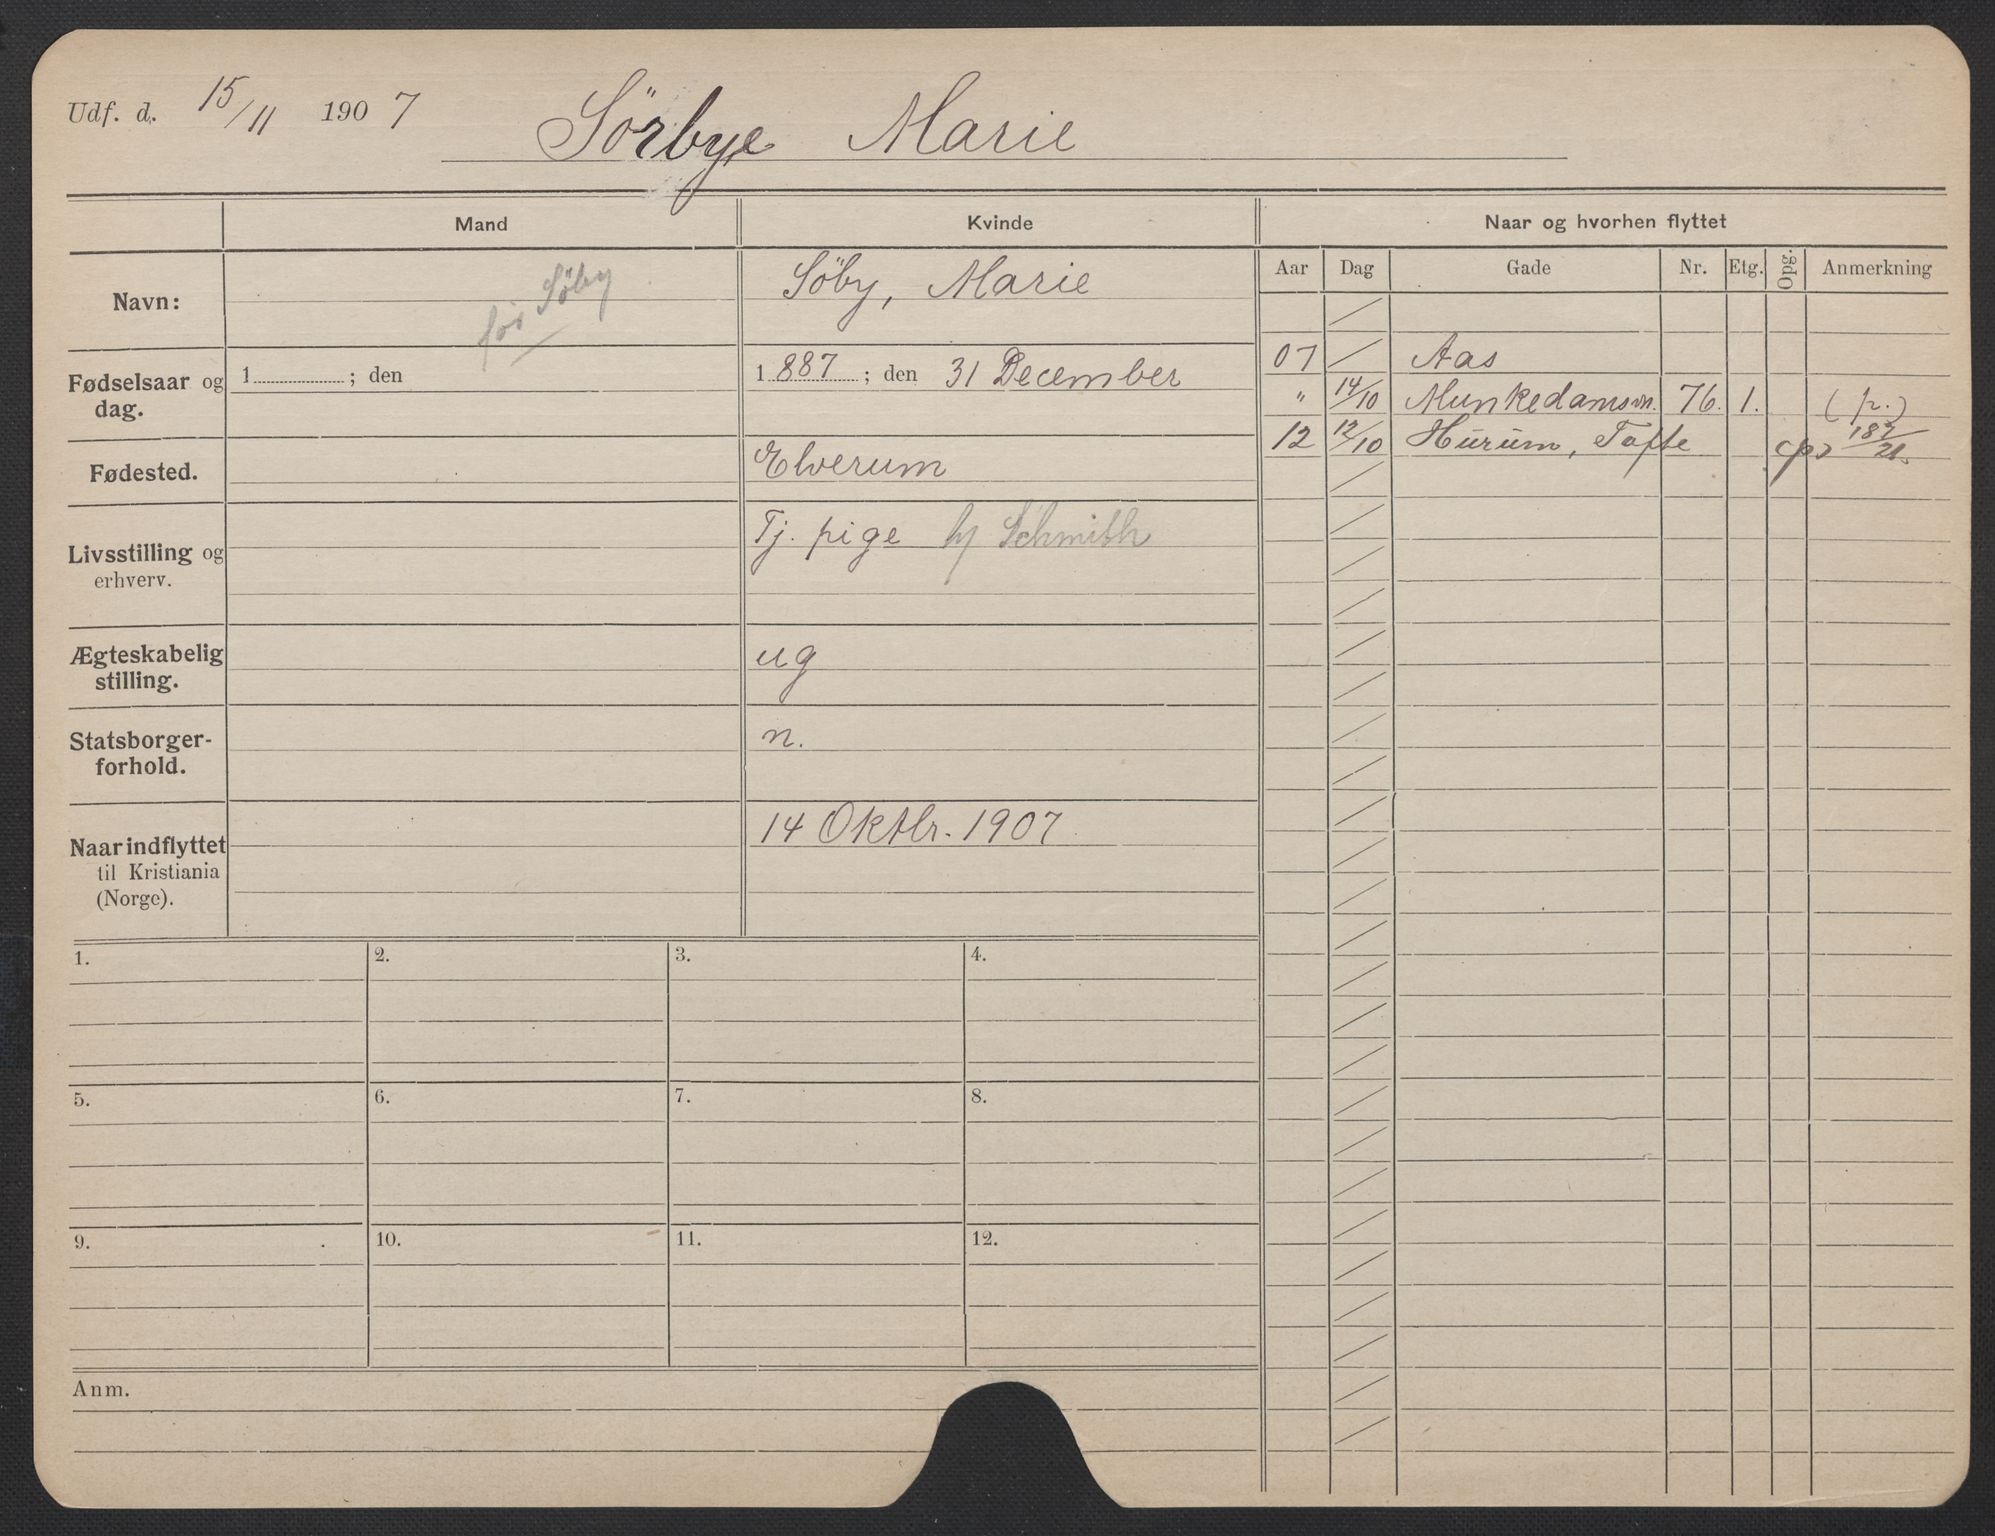 Udf. d. 15/11 1907 Sörbye Marie
Mand Kvinde Naar og hvorhen flyttet
Aar Dag Gade Nr. Etg. Opg. Anmerkning
Navn: for Söby Söby, Marie
Fødselsaar og dag. 1 ; den 1887 ; den 31 December
Fødested. Elverum
Livsstilling og erhverv. Tj. pige h/ Schmith
Ægteskabelig stilling. ug
Statsborger-forhold. n.
Naar indflyttet til Kristiania (Norge). 14 Oktbr. 1907
07 Aas
" 14/10 Munkedamsvn. 76. 1. (p.)
12 12/10 Hurum, Tofte (p)
1. 2. 3. 4.
5. 6. 7. 8.
9. 10. 11. 12.
Anm.